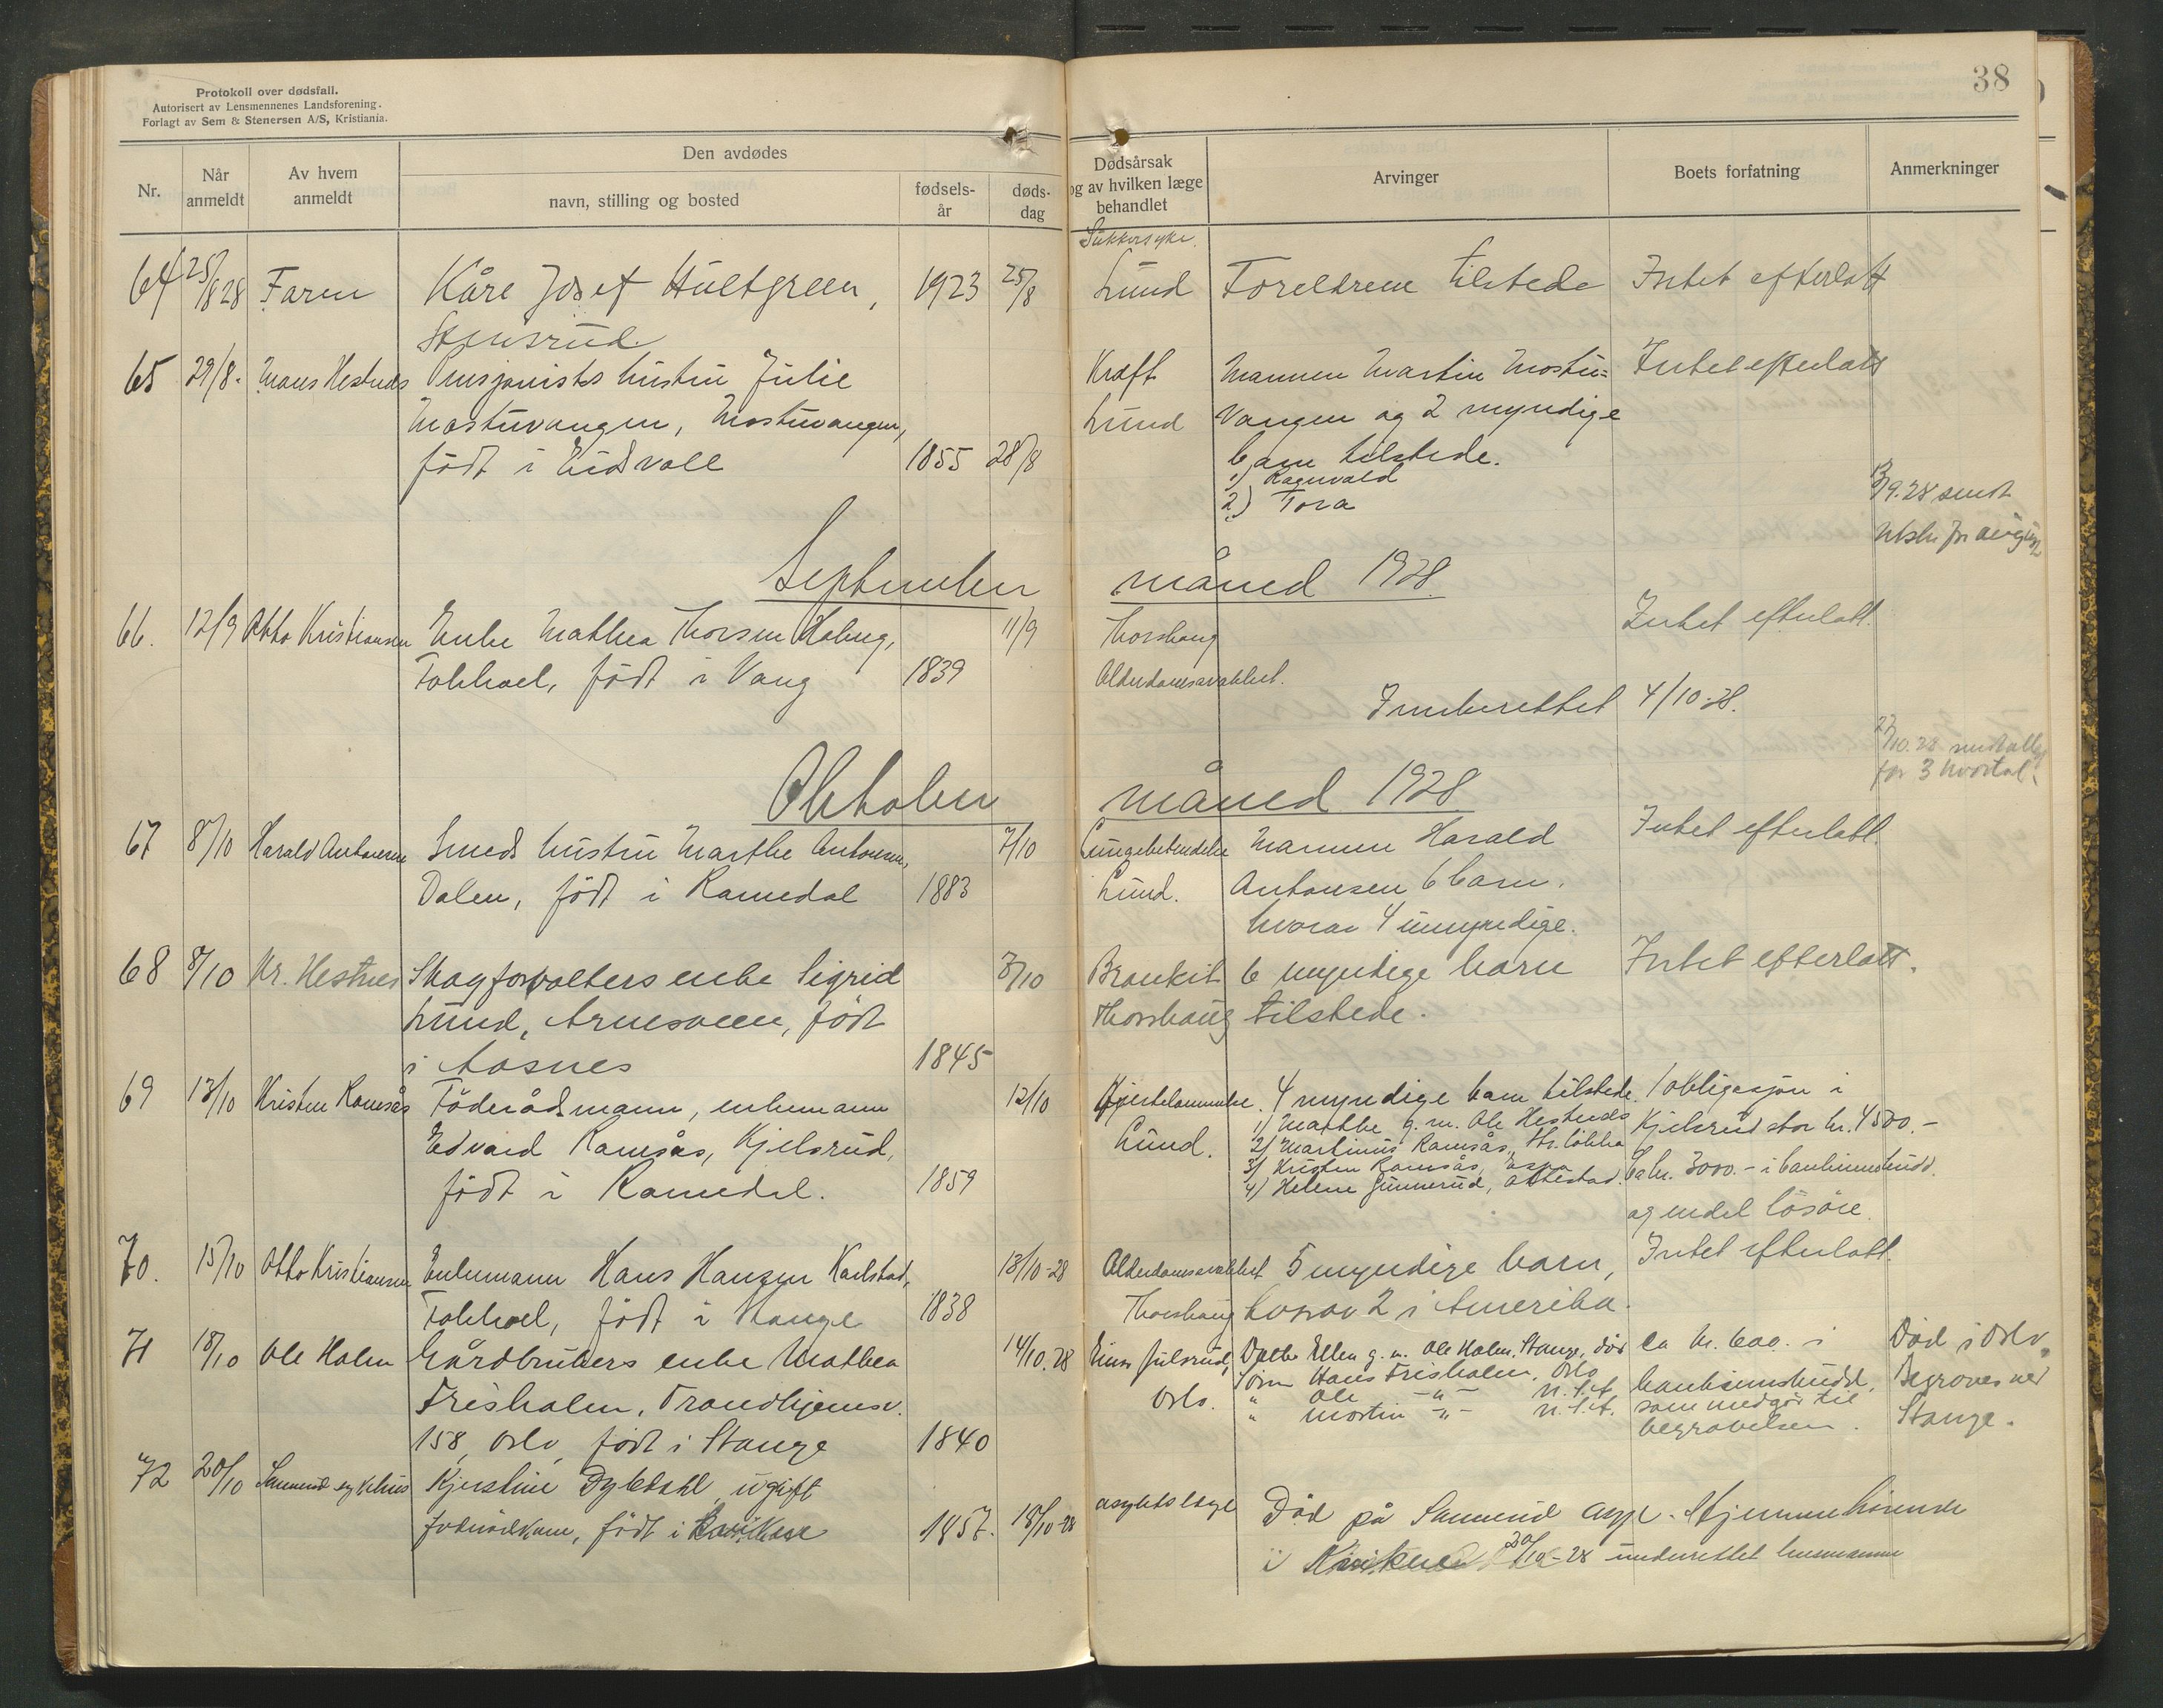 Protokoll over dødsfall.
Autorisert av Lensmennenes Landsforening.
Forlagt av Sem & Stenersen A/S, Kristiania.
38
Nr.
Når anmeldt
Av hvem anmeldt
Den avdødes
navn, stilling og bosted
fødsels-år
døds-dag
Dødsårsak og av hvilken læge behandlet
Arvinger
Boets forfatning
Anmerkninger
Sukkersyke.
64 25/8 28 Faren Kåre Josef Hultgreen, 1923 25/8 Lund Foreldrene tilstede Intet efterlatt
Stensrud
65 29/8. Hestnes Pensjonists hustru Julie Kreft Mannen Martin Mostu=
Intet efterlatt
Mostuvangen, Mostuvangen, Lund vangen og 2 myndige
født i Eidsvoll 1855 28/8 barn tilstede.
1) Ragnvald
2) Tora
9.28 sendt
September måned 1928.
66. 12/9 Otto Kristiansen Enke Mathea Thorsen Haberg, 11/9 Thorshaug Intet efterlatt.
født i Vang 1839 Alderdomsavkleft.
Innberettet 4/10-28.
27/10.28
for 3 kvartal.
Oktober måned 1928
67 8/10 Harald Antonsen Smeds hustru Marthe Antonsen, 7/10 Lungebetendelse Mannen Harald Intet efterlatt.
Dalen, født i Romedal 1883 Lund. Antonsen 6 barn.
hvorav 4 umyndige.
68 8/10 Kr. Hestnes Skogforvalters enke Sigrid 7/10 Bronkit 6 myndige barn Intet efterlatt.
Lund, Arnesveen, født Thorshaug tilstede.
i Aasnes 1845
69 13/10 Kristen Ramsås Föderådsmann, enkemann 12/10 Hjertelammelse. 4 myndige barn tilstede. 1 obligasjon i
Edvard Ramsås, Kjelsrud, Lund. 1) Mathe g.m. Ole Hestnes Kjelsrud stor kr. 4500.-
2) Martinus Ramsås,
født i Romedal. 1859 3) Kristen Ramsås, Espa ca kr. 3000.- i bankinnskudd.
4) Helene Gunnerud,
og endel lösöre.
70. 15/10 Otto Kristiansen Enkemann Hans Hansen Karlstad, 13/10-28 Alderdomsavkleft 5 myndige barn, Intet efterlatt.
født i Stange 1838 Thorshaug hvorav 2 i Amerika.
71 18/10 Ole Holen Gårdbrukers enke Mathea 14/10.28 Einar Julsrud, Datter Ellen g.m. Ole Holen, Stange, død ca kr. 600. i Död i Oslo,
Frisholen, Trondhjemsv. Oslo. Sönn Hans Frisholen, Oslo bankinnskudd, Begraves ved
" Ole -"- U.S.A. som medgår til Stange.
158, Oslo, født i Stange 1840 " Martin -"- U.S.A. begravelsen.
72 20/10 Sanerud sykehus Kjerstine Dybdahl ugift 18/10-28 asylets læge Död på Sanerud asyl. Hjemmehörende
født i 1857. i 20/10-28 underrettet lensmannen